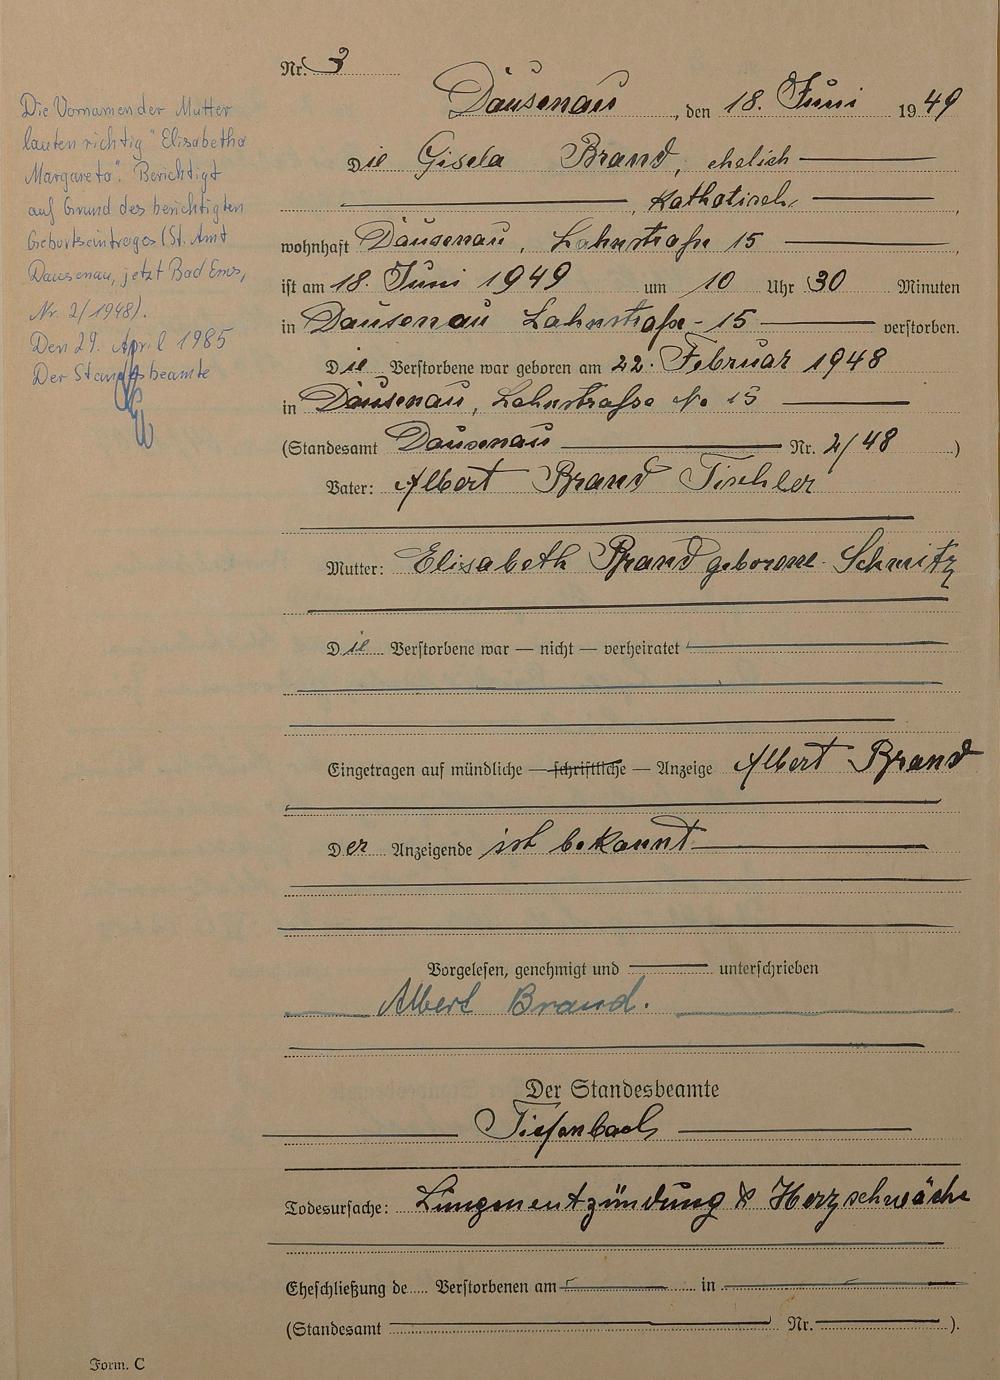 Nr. 3
Dausenau, den 18. Juni 1949
Die Gisela Brand, ehelich
Katholisch,
wohnhaft Dausenau, Lahnstraße 15
ist am 18. Juni 1949 um 10 Uhr 30 Minuten
in Dausenau Lahnstraße - 15 verstorben.
Die Verstorbene war geboren am 22. Februar 1948
in Dausenau, Lahnstrasse No 15
(Standesamt Dausenau Nr. 2/48)
Vater: Albert Brand Tischler
Mutter: Elisabeth Brand geborene Schmitz
Die Verstorbene war — nicht — verheiratet
Eingetragen auf mündliche — schriftliche — Anzeige Albert Brand
Der Anzeigende ist bekannt
Vorgelesen, genehmigt und unterschrieben
Albert Brand.
Der Standesbeamte
Tiefenbach
Todesursache: Lungenentzündung & Herzschwäche
Eheschließung de..... Verstorbenen am in
(Standesamt Nr. ).
Form. C
Die Vornamen der Mutter
lauten richtig "Elisabetha
Margareta". Berichtigt
auf Grund des berichtigten
Geburtseintrages (St. Amt
Dausenau, jetzt Bad Ems,
Nr. 2/1948).
Den 29. April 1985
Der Standesbeamte